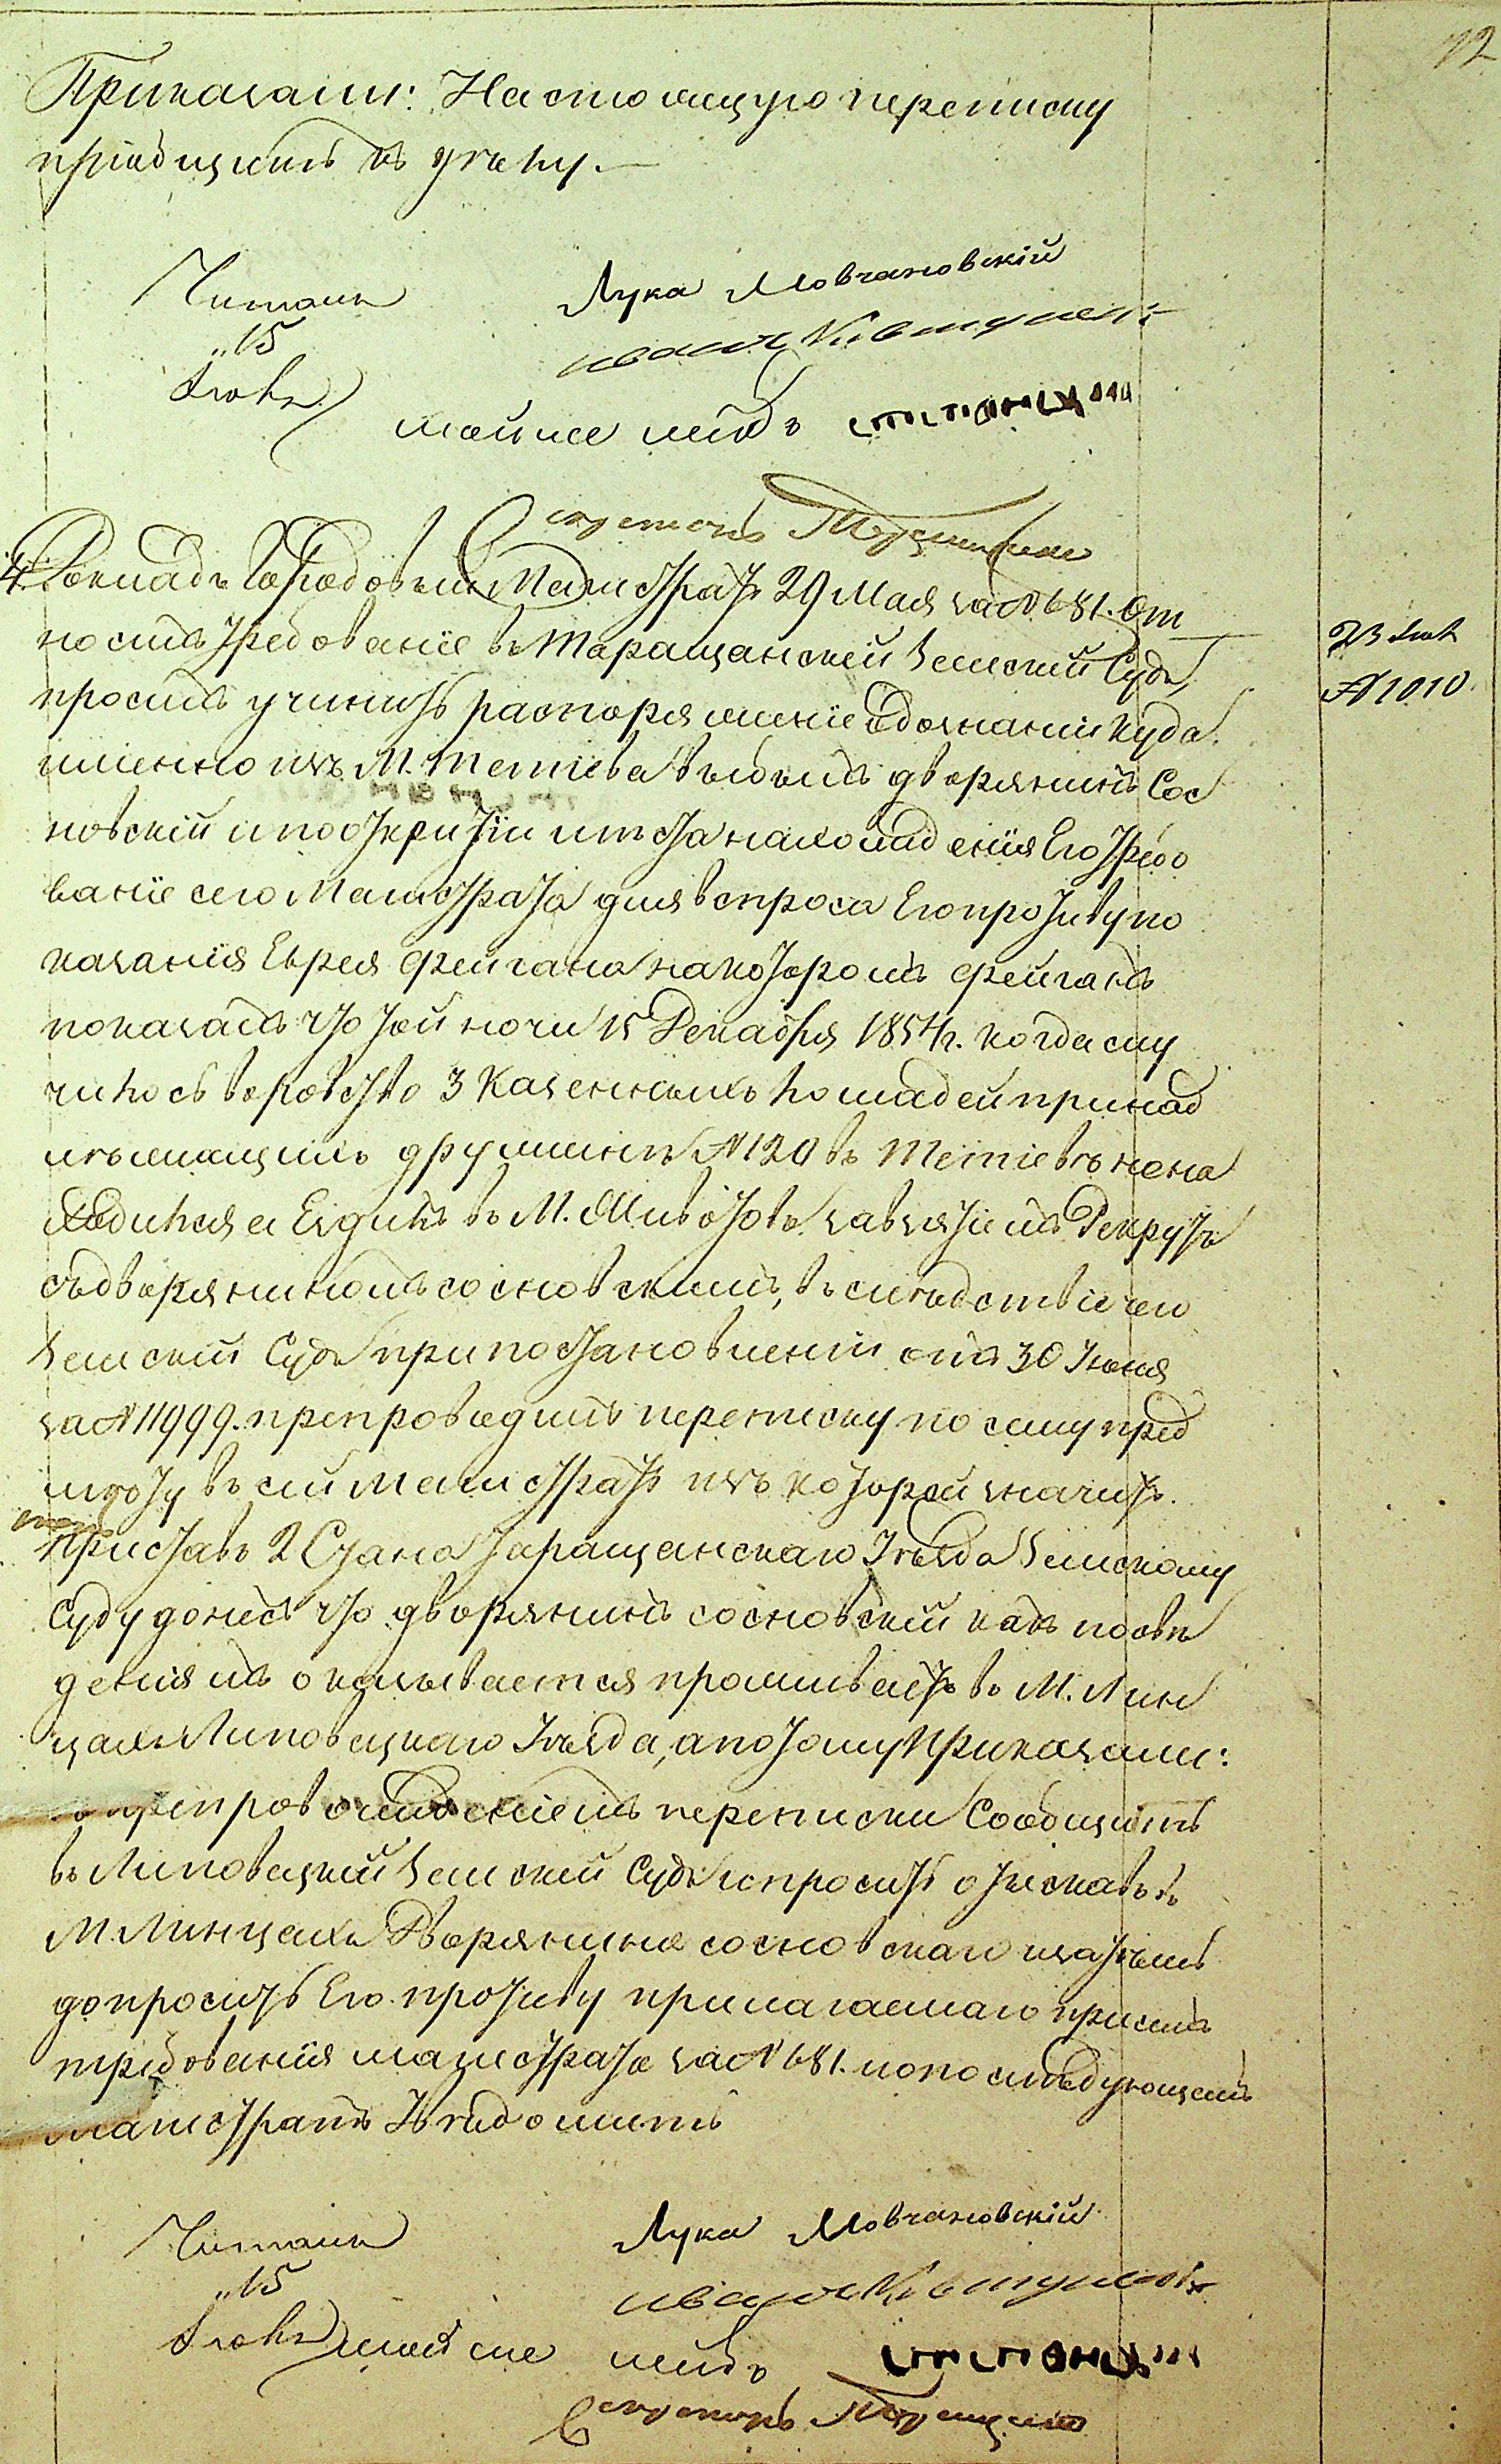 72
Приказали: Настоящую переписку
пріобщить къ учету.—
Читалъ
15
Іюля
Лука Мовчановскій
Иванъ
Секретарь
4. Докладъ Городовый Магистратъ 29 Мая за № 681. От
носился требованіе въ Таращанскій Земскій Судъ,
просилъ учинить распоряженіе о дознаніи куда
именно изъ М. Тетіева выбылъ дворянинъ Сос
новскій и по открытіи мѣста нахожденія Его требо
ваніе сего Магистрата для вспроса Его противу по
казанія Еврея Фейгана на которомъ Фейганъ
показалъ что той ночи 15 Декабря 1854 г. когда слу
чилось воровство 3 Казенныхъ лошадей принад
лежащихъ дружинѣ № 120 въ Тетіевѣ не на
ходился а Ездилъ въ М. Животовъ за взятіемъ Рекрутъ
съ дворяниномъ Сосновскимъ, въ слѣдствіе чего
Земскій Судъ при постановленіи отъ 30 Іюня
за № 11999. препроводилъ переписку по сему пред
мѣту въ сій Магистратъ изъ которой значитъ.
что
Приставъ 2 Стана Таращанскаго Уѣзда Земскому
Суду донесъ что дворянинъ Сосновскій какъ по свѣ
деніямъ оказывается проживаетъ въ М. Лин
цахъ Липовецкаго Уѣзда, а потому Приказали:
съ препровожденіемъ переписки Сообщить
въ Липовецкій Земскій Судъ и просить отыскавъ въ
М. Линцахъ Дворянина Сосновскаго и затѣмъ
допросить Его противу прилагаемаго при семъ
требованія магистрата за № 681. и о послѣдующемъ
магистратъ Увѣдомить
№ 1010
Читалъ
15
Іюля
Лука Мовчановскій
Иванъ
Секретарь